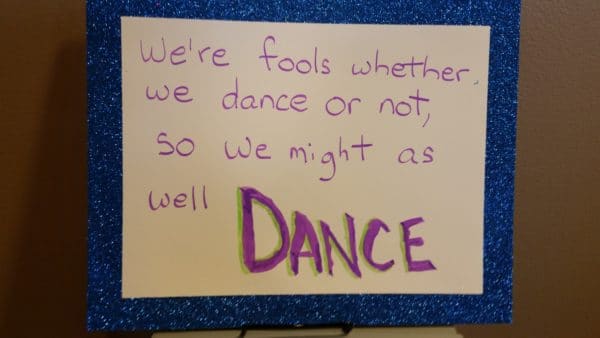 We're fools whether
we dance or not,
so we might as
well DANCE